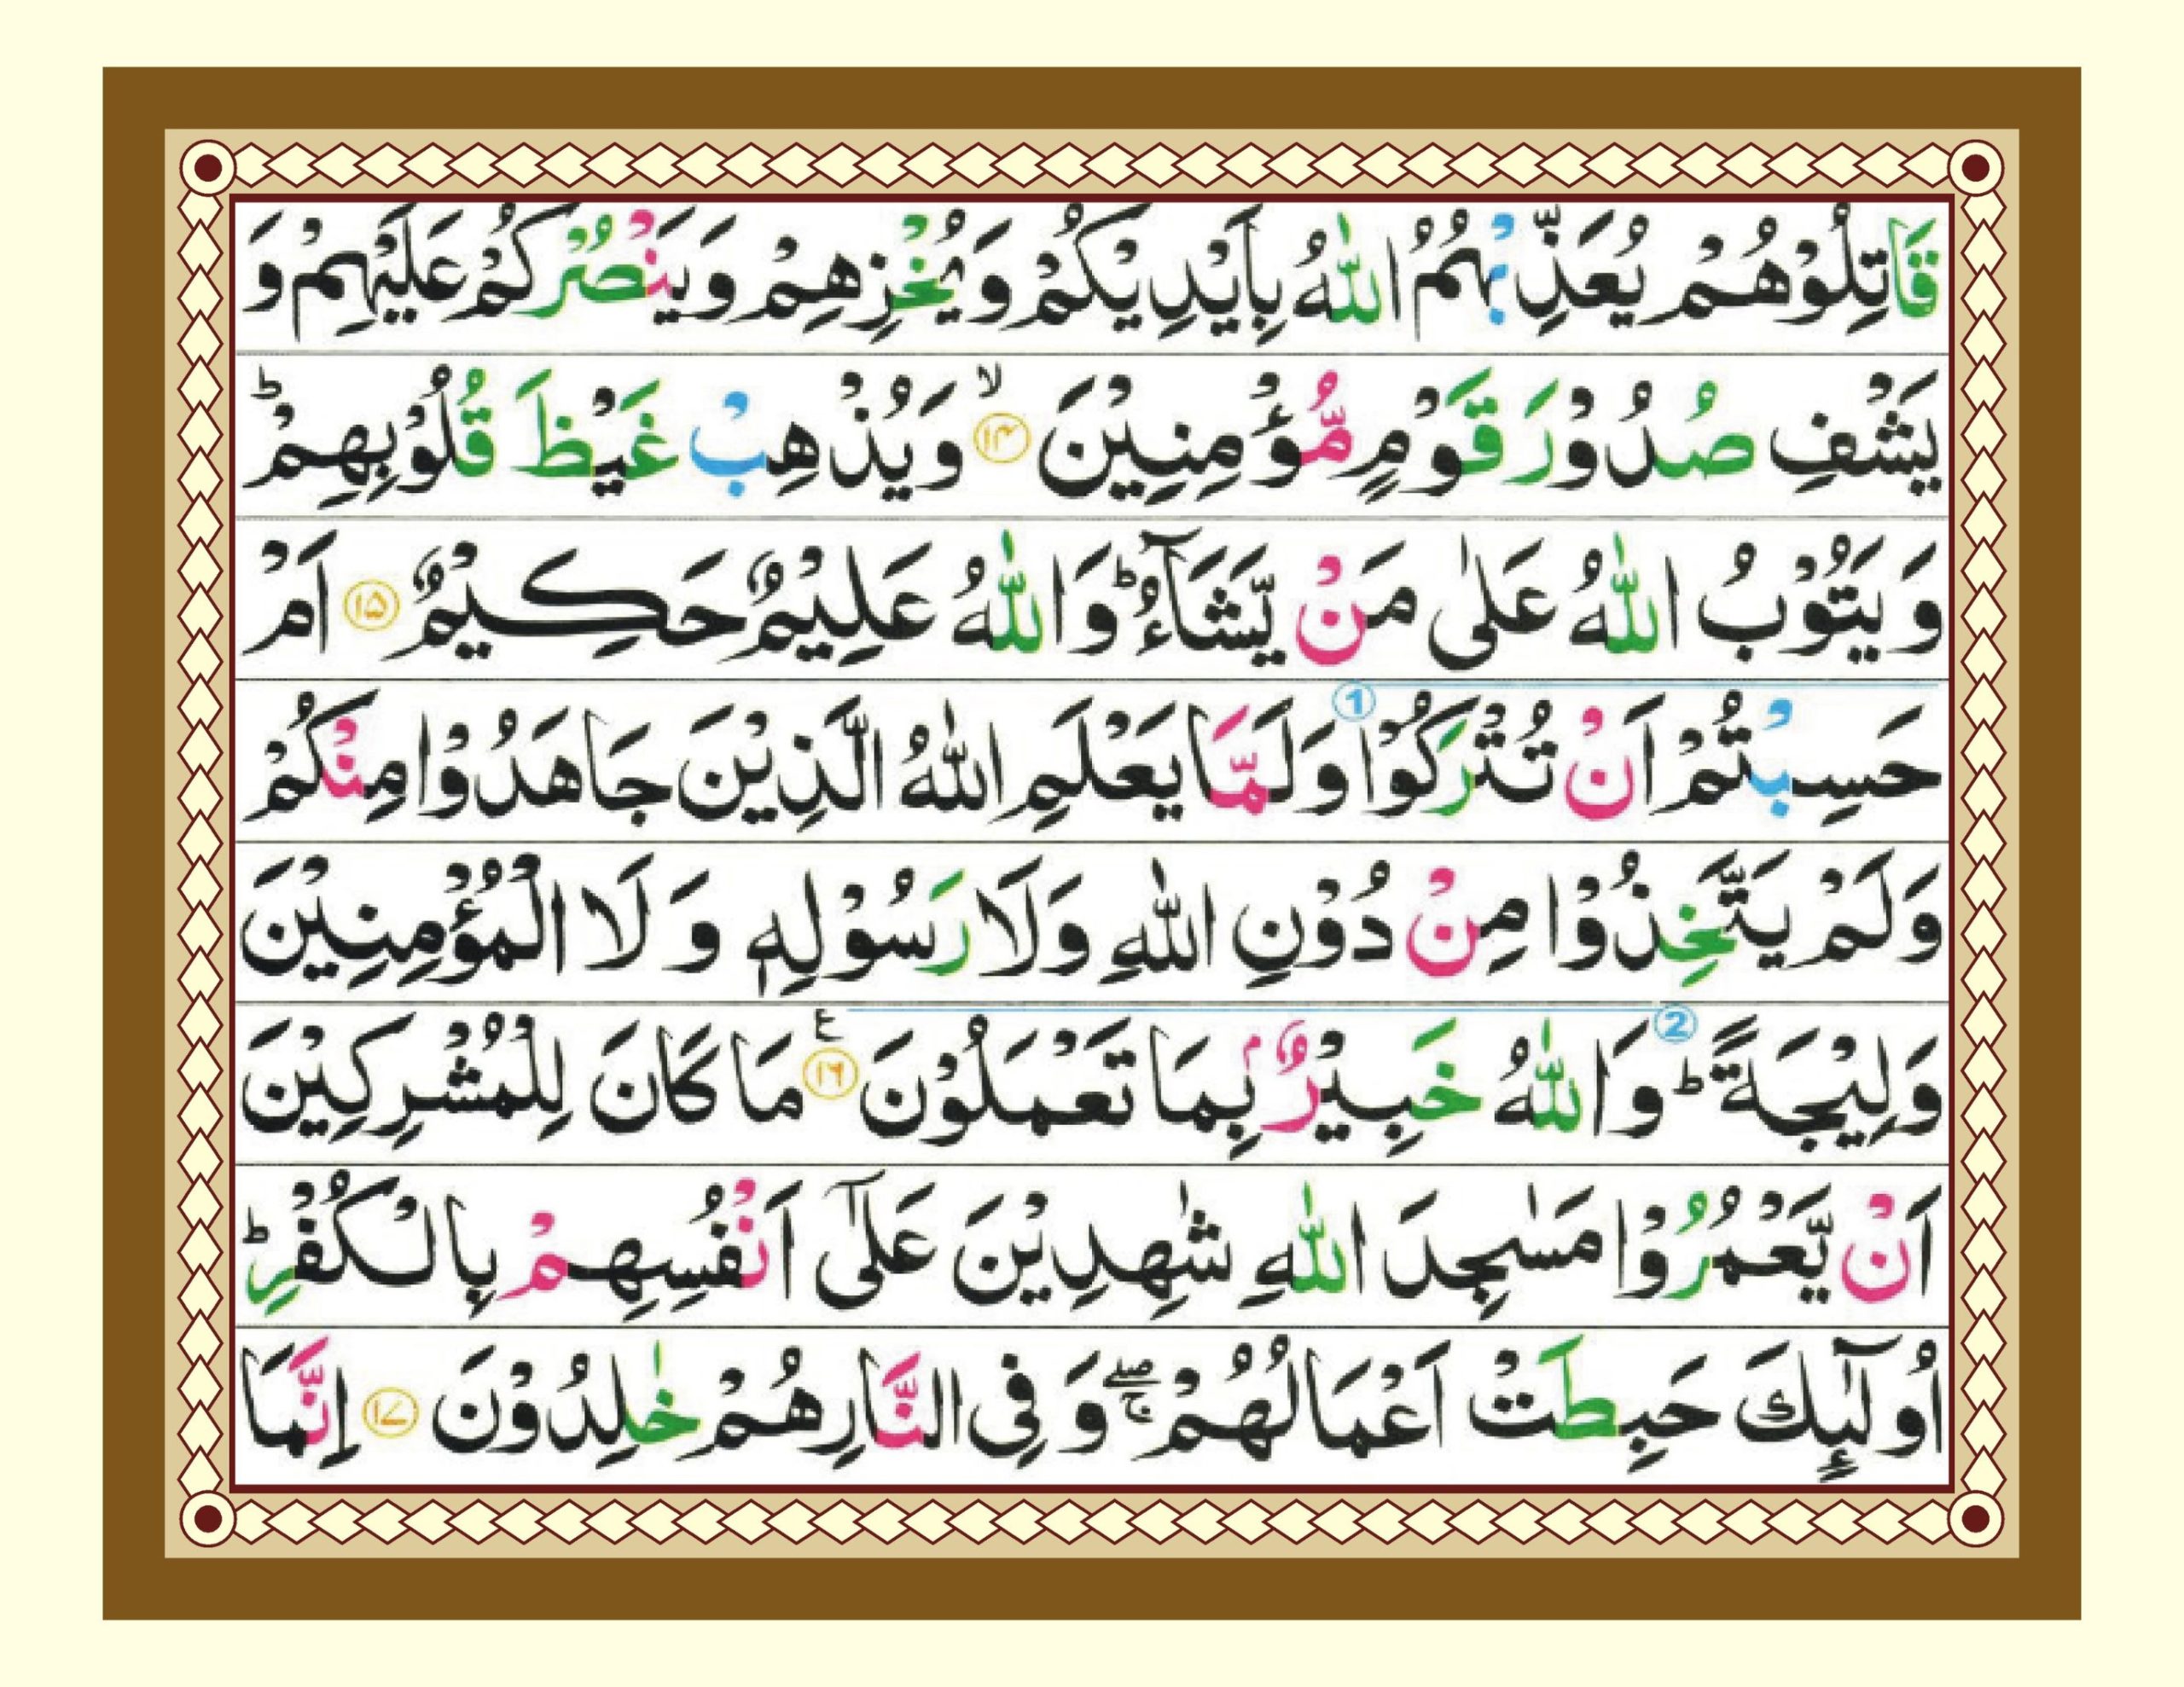 قَاتِلُوْهُمْ يُعَذِّبْهُمُ اللّٰهُ بِاَيْدِيْكُمْ وَيُخْزِهِمْ وَيَنْصُرْكُمْ عَلَيْهِمْ وَ
يَشْفِ صُدُوْرَ قَوْمٍ مُّؤْمِنِيْنَ ۙ﴿۱۴﴾ وَيُذْهِبْ غَيْظَ قُلُوْبِهِمْ ؕ
وَيَتُوْبُ اللّٰهُ عَلٰى مَنْ يَّشَآءُ ؕ وَاللّٰهُ عَلِيْمٌ حَكِيْمٌ ﴿۱۵﴾ اَمْ
حَسِبْتُمْ اَنْ تُتْرَكُوْا ① وَلَمَّا يَعْلَمِ اللّٰهُ الَّذِيْنَ جَاهَدُوْا مِنْكُمْ
وَلَمْ يَتَّخِذُوْا مِنْ دُوْنِ اللّٰهِ وَلَا رَسُوْلِهٖ وَلَا الْمُؤْمِنِيْنَ
وَلِيْجَةً ؕ ② وَاللّٰهُ خَبِيْرٌۢ بِمَا تَعْمَلُوْنَ ﴿۱۶﴾ ع مَا كَانَ لِلْمُشْرِكِيْنَ
اَنْ يَّعْمُرُوْا مَسٰجِدَ اللّٰهِ شٰهِدِيْنَ عَلٰٓى اَنْفُسِهِمْ بِالْكُفْرِ ؕ
اُولٰٓئِكَ حَبِطَتْ اَعْمَالُهُمْ ۖۚ وَفِى النَّارِ هُمْ خٰلِدُوْنَ ﴿۱۷﴾ اِنَّمَا